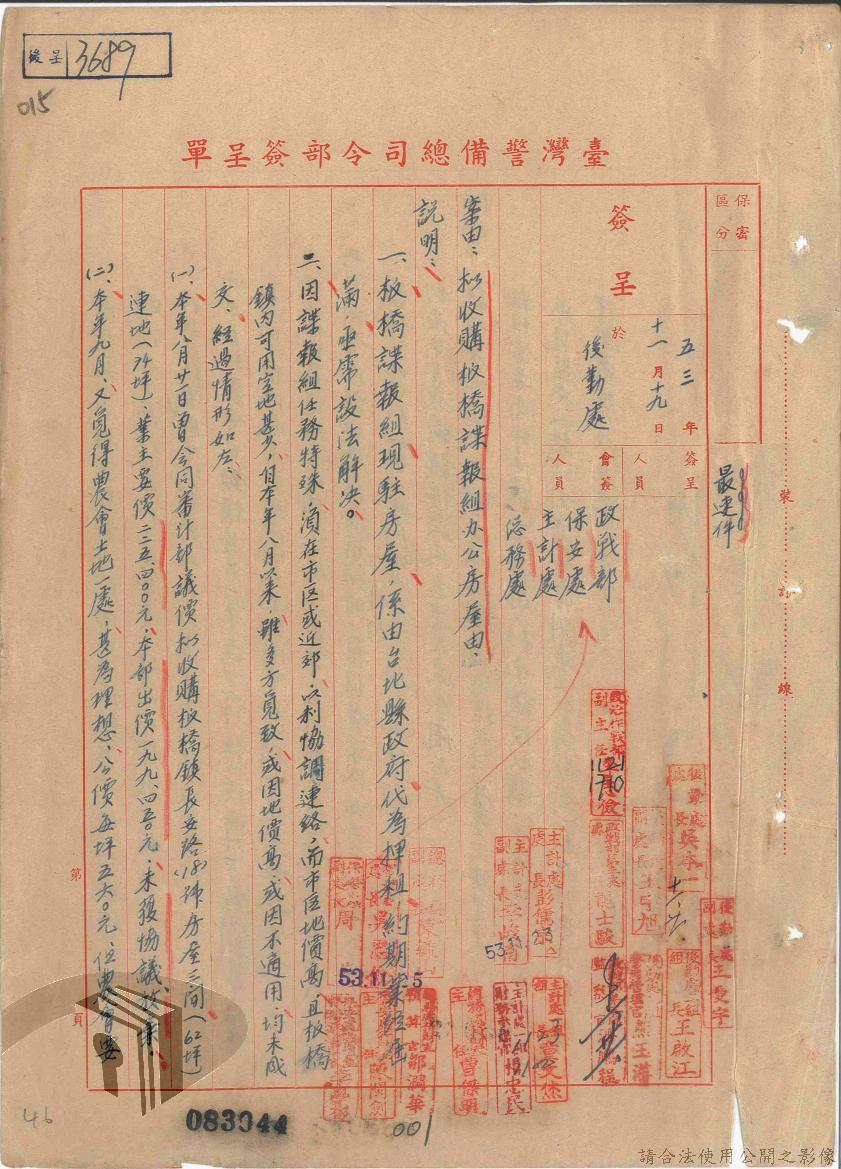 後呈 3689
015
臺灣警備總司令部簽呈單
保密
區分
最速件
裝
訂
線
簽呈
於
五三年
十一月十九日
後勤處
簽呈
人員
會簽
人員
政戰部
保安處
主計處
總務處
案由：拟收購板橋諜報組办公房屋由：
說明：
一、板橋諜報組現駐房屋，係由台北縣政府代為押租，約期業經屆
滿，亟需設法解決。
二、因諜報組任務特殊，須在市区或近郊，以利協調連絡，而市区地價高，且板橋
鎮內可用空地甚少，自本年八月以來，雖多方覓致，或因地價高，或因不適用，均未成
交，經過情形如左：
(一)、本年八月廿一日曾会同審計部議價拟收購板橋鎮長安路 號房屋三间(62坪
連地(74坪)，業主要價二二五、四〇〇元，本部出價一九九、四五〇元，未獲協議放棄。
(二)、本年九月，又覓得農會土地一處，甚為理想，公價每坪五六〇元，但農會要
第
頁
後勤處
處長
主計處
處長彭儒
53.11.23
53.11.25
1121
1710
後勤處組
組長王啟江
083044
001
46
請合法使用公開之影像